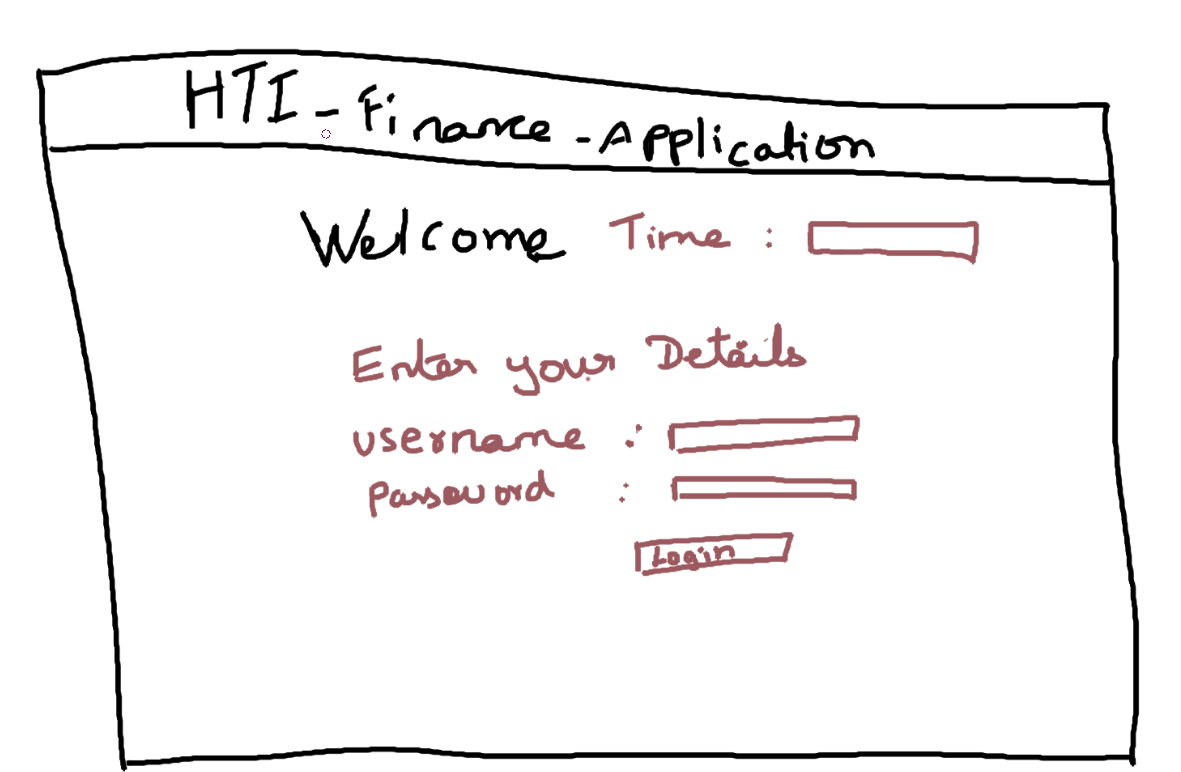 HTI - Finance - Application
Welcome Time :
Enter your Details
username :
password :
Login